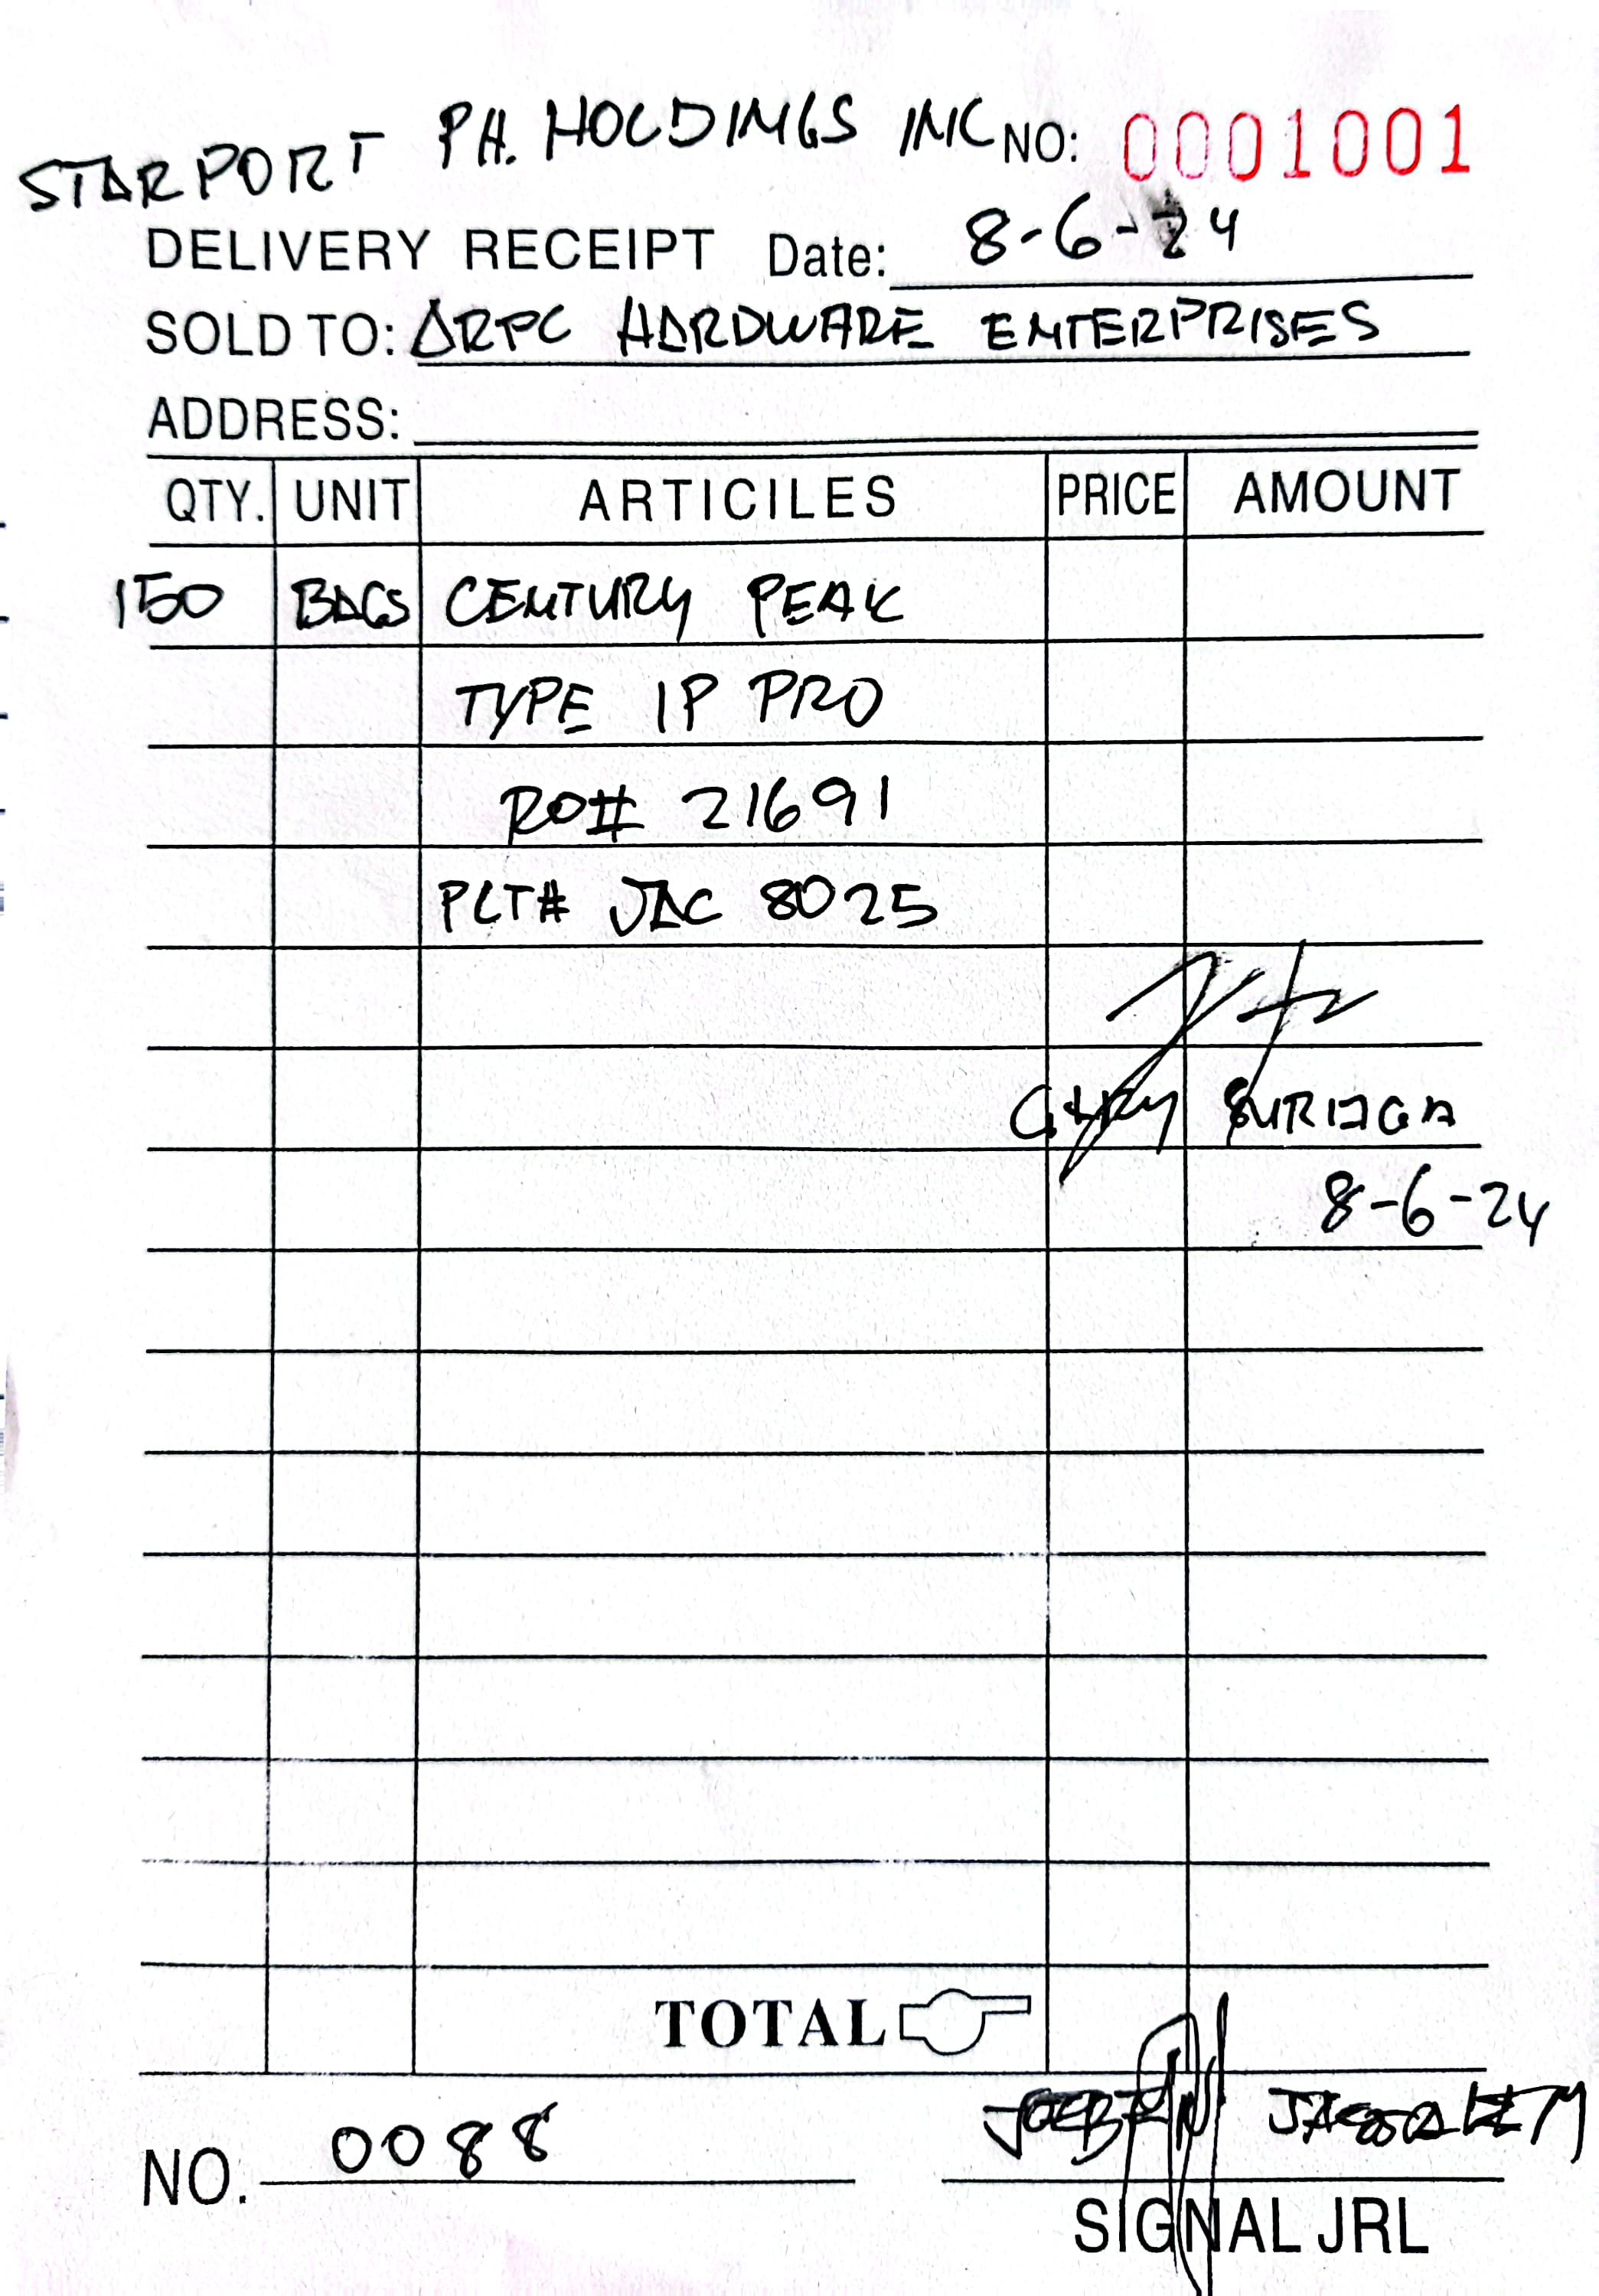 STARPORT PH. HOLDINGS INC NO: 0001001
DELIVERY RECEIPT Date: 8-6-24
SOLD TO: ARPC HARDWARE ENTERPRISES
ADDRESS:
QTY. UNIT ARTICILES PRICE AMOUNT
150 BAGS CENTURY PEAK
TYPE 1P PRO
RO# 21691
PLT# JAC 8025
GARY SURIAGA
8-6-24
TOTAL
NO. 0088
SIGNAL JRL